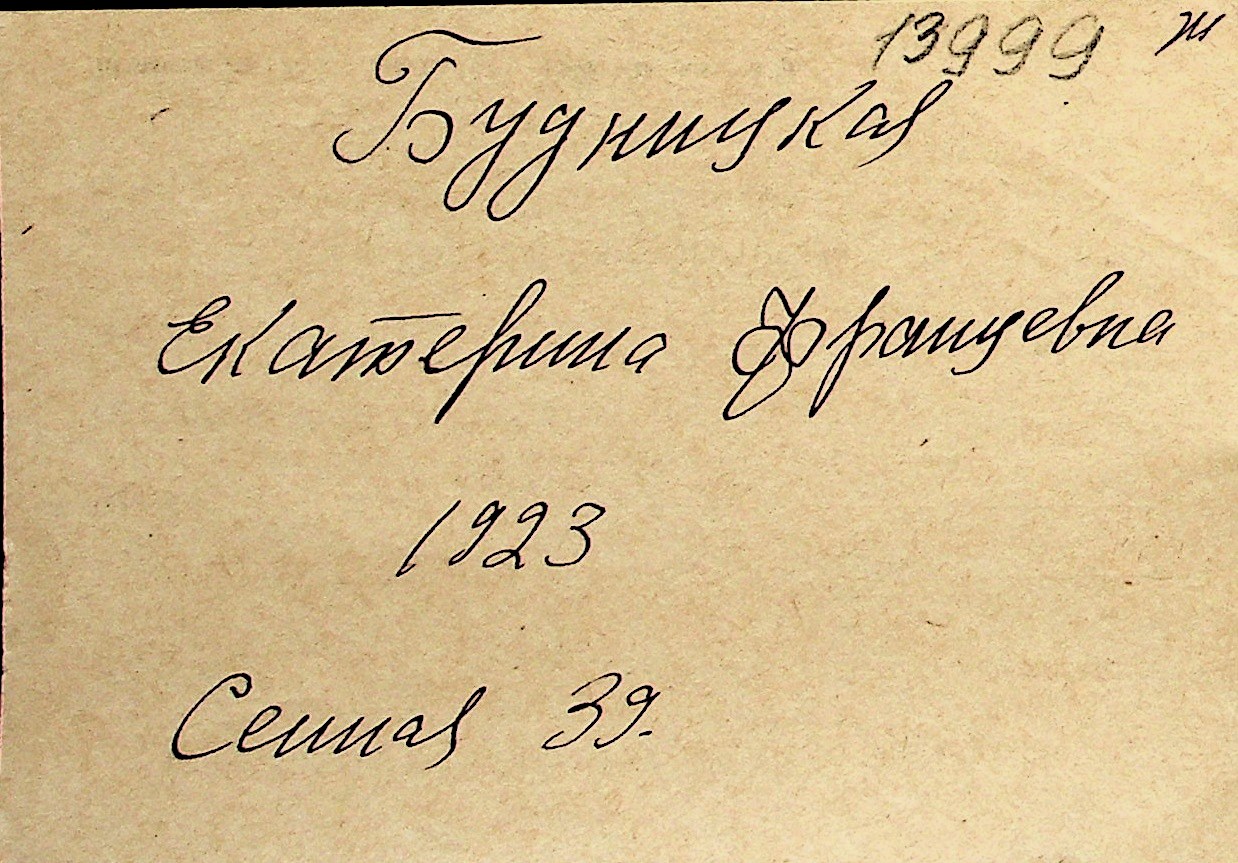 13999 ж
Будницкая
Екатерина Францевна
1923
Сенная 39.